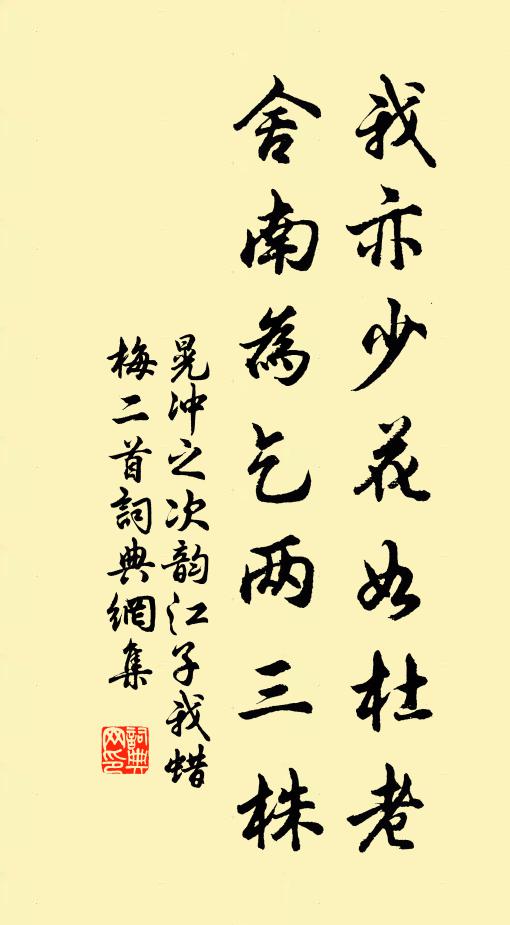 我亦少花如杜老
舍南為乞两三株
晁冲之次韵江子我蜡
梅二首詞典網集
詞典
网印